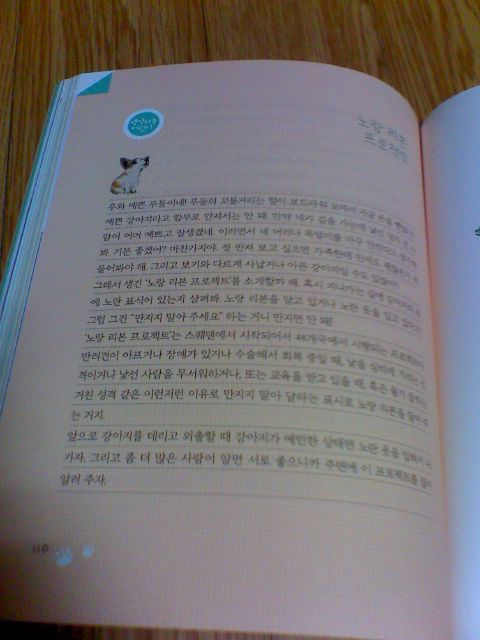 노랑 리본
프로젝트
우와 예쁜 푸들이네! 푸들의 꼬불거리는 털이
예쁜 강아지라고 함부로 만져서는 안 돼. 만약 네가 길을 가는데 낯선
람이 어머 예쁘고 잘생겼네. 이러면서 네 머리나
봐. 기분 좋겠어? 마찬가지야. 정 만져 보고 싶으면 가족한테 만져도
물어봐야 해. 그리고 보기와 다르게 사납거나 아픈 강아지일 수도 있잖아?
그래서 생긴 '노랑 리본 프로젝트'를 소개할까 해. 혹시 지나가는 길에 강아지의
에 노란 표식이 있는지 살펴봐. 노랑 리본을 달고 있거나 노란 옷을 입고 있다고
그럼 그건 "만지지 말아 주세요" 하는 거니 만지면 안 돼!
'노랑 리본 프로젝트'는 스웨덴에서 시작되어서 48개국에서 시행되는 프로젝트야.
반려견이 아프거나 장애가 있거나 수술해서 회복 중일 때, 낯을 심하게 가리는 성
격이거나 낯선 사람을 무서워하거나, 또는 교육을 받고 있을 때, 혹은
거친 성격 같은 이런저런 이유로 만지지 말아 달라는 표시로 노랑 리본을 달아 주
는 거지.
앞으로 강아지를 데리고 외출할 때 강아지가 예민한 상태면 노란 옷을 입혀서 나
가자. 그리고 좀 더 많은 사람이 알면 서로 좋으니까 주변에 이 프로젝트를 많이
알려 주자.
110